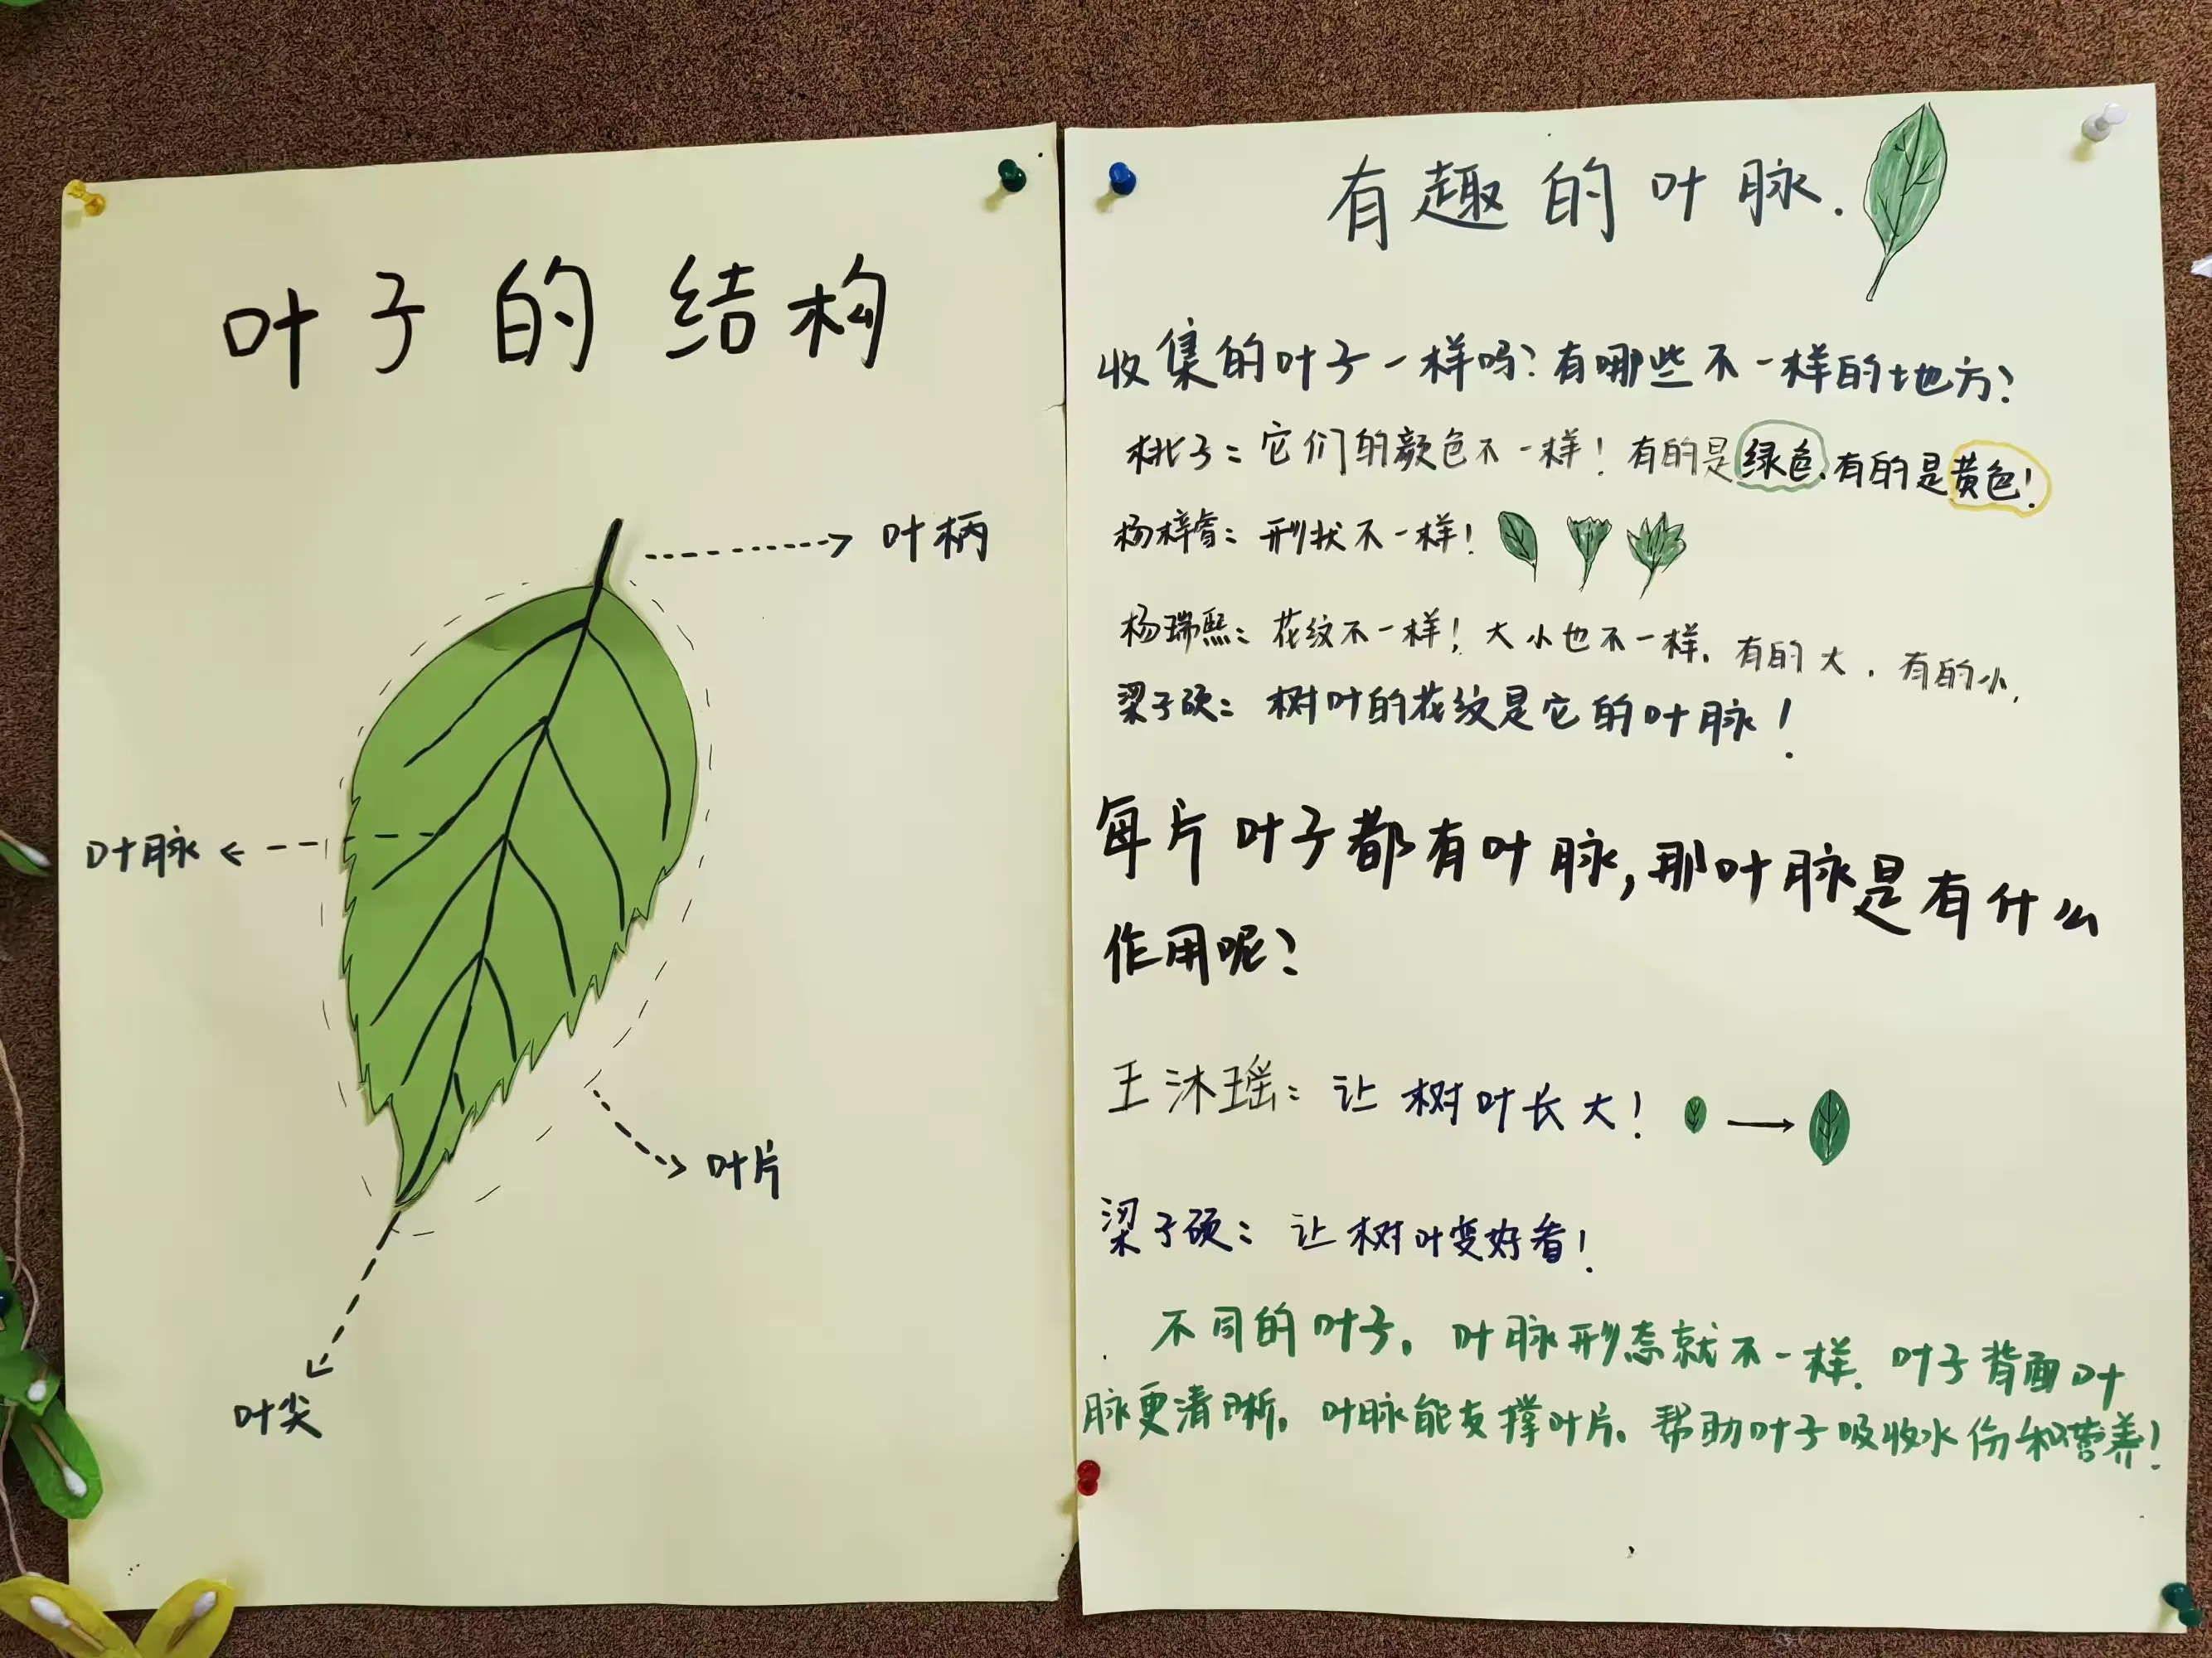 叶子的结构
叶柄
叶脉
叶片
叶尖
有趣的叶脉.
收集的叶子一样吗?有哪些不一样的地方?
桃子:它们的颜色不一样!有的是绿色,有的是黄色!
杨梓睿:形状不一样!
杨瑞熙:花纹不一样!大小也不一样,有的大,有的小,
梁子硕:树叶的花纹是它的叶脉!
每片叶子都有叶脉,那叶脉是有什么
作用呢?
王沐瑶:让树叶长大!
梁子硕:让树叶变好看!
不同的叶子,叶脉形态就不一样.叶子背面叶
脉更清晰。叶脉能支撑叶片。帮助叶子吸收水份和营养!